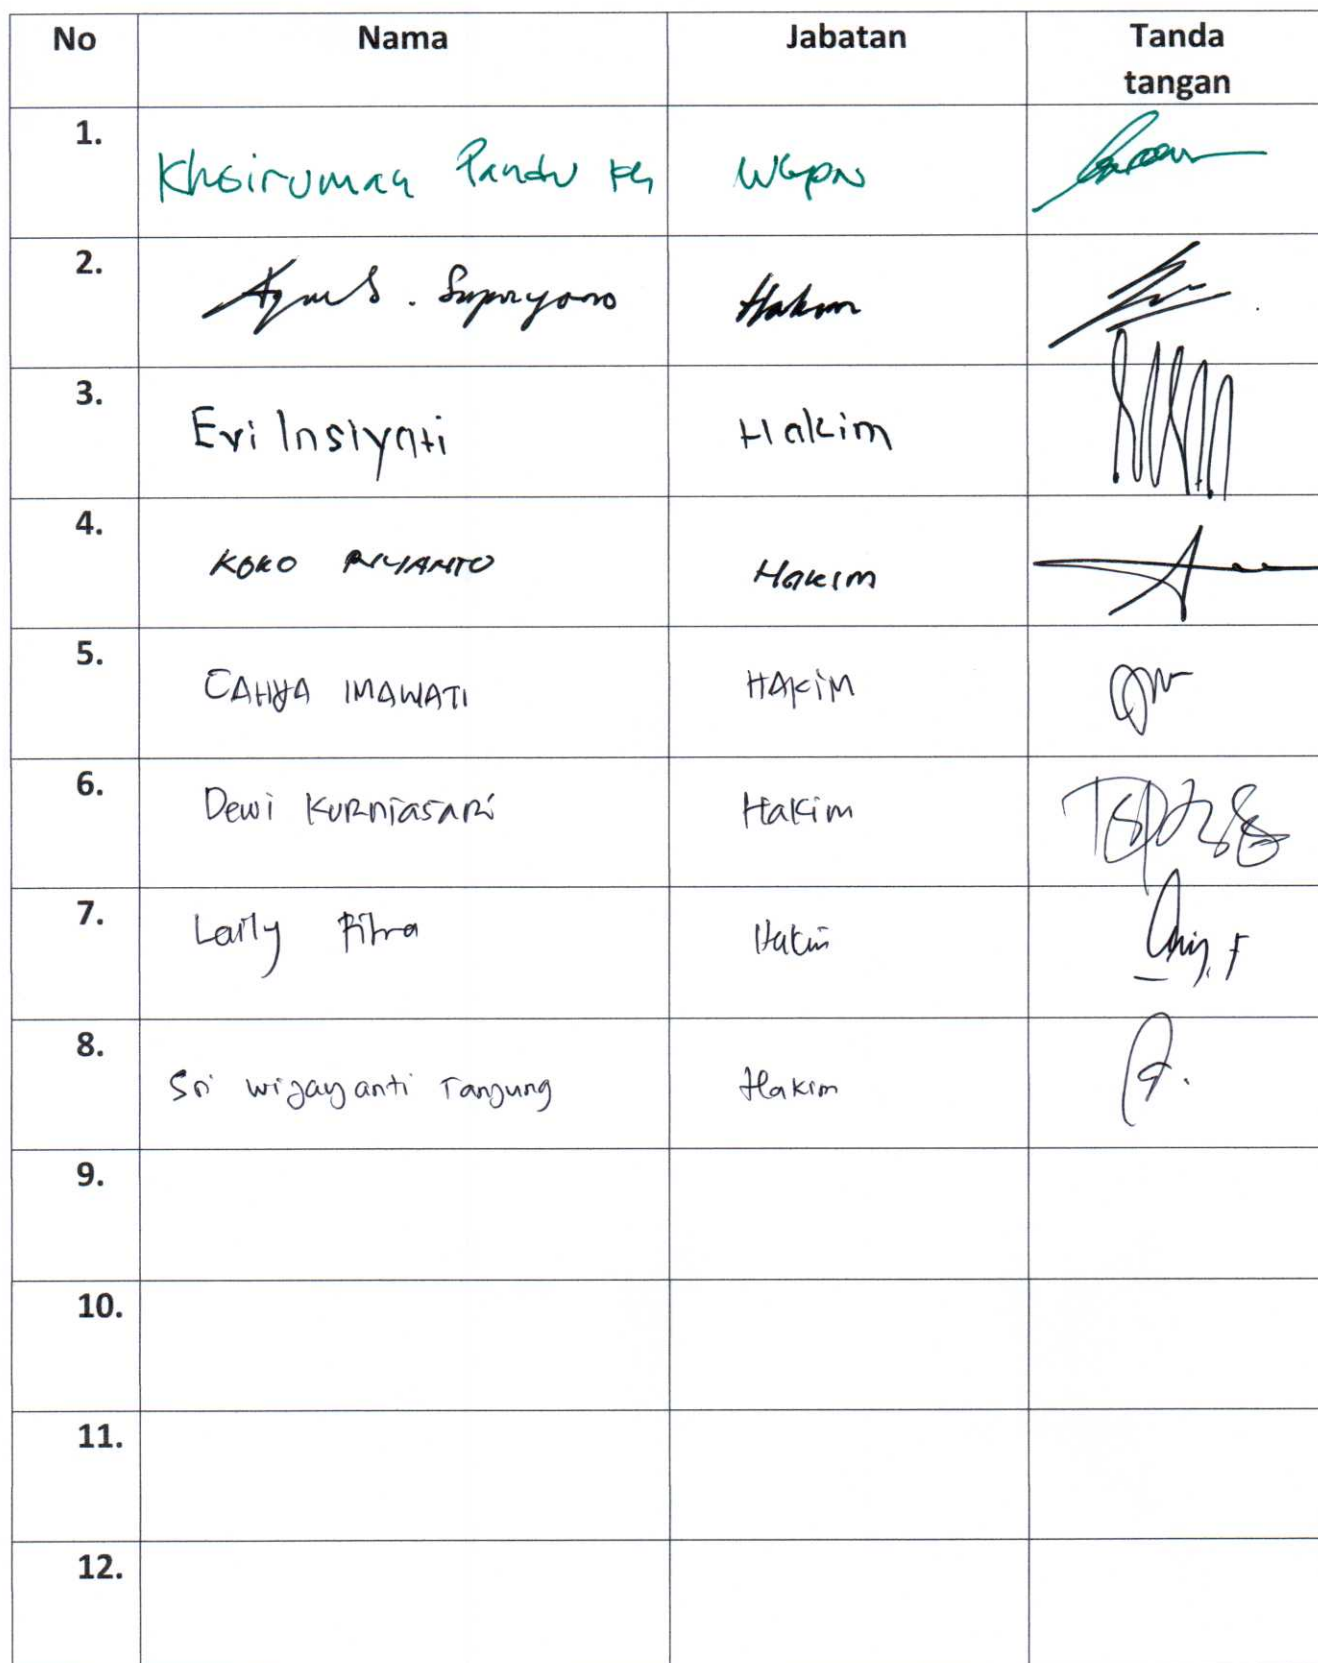 No Nama Jabatan Tanda
tangan
1.
Khoirumar Pandu
2.
Agus. Supriyono Hakim
3.
Evi Insiyati Hakim
4.
KOKO RIYANTO Hakim
5.
CAHYA IMAWATI HAKIM
6.
Dewi Kurniasari Hakim
7.
Laily Fitria Hakim
8.
Sri wijayanti Tanjung Hakim
9.
10.
11.
12.